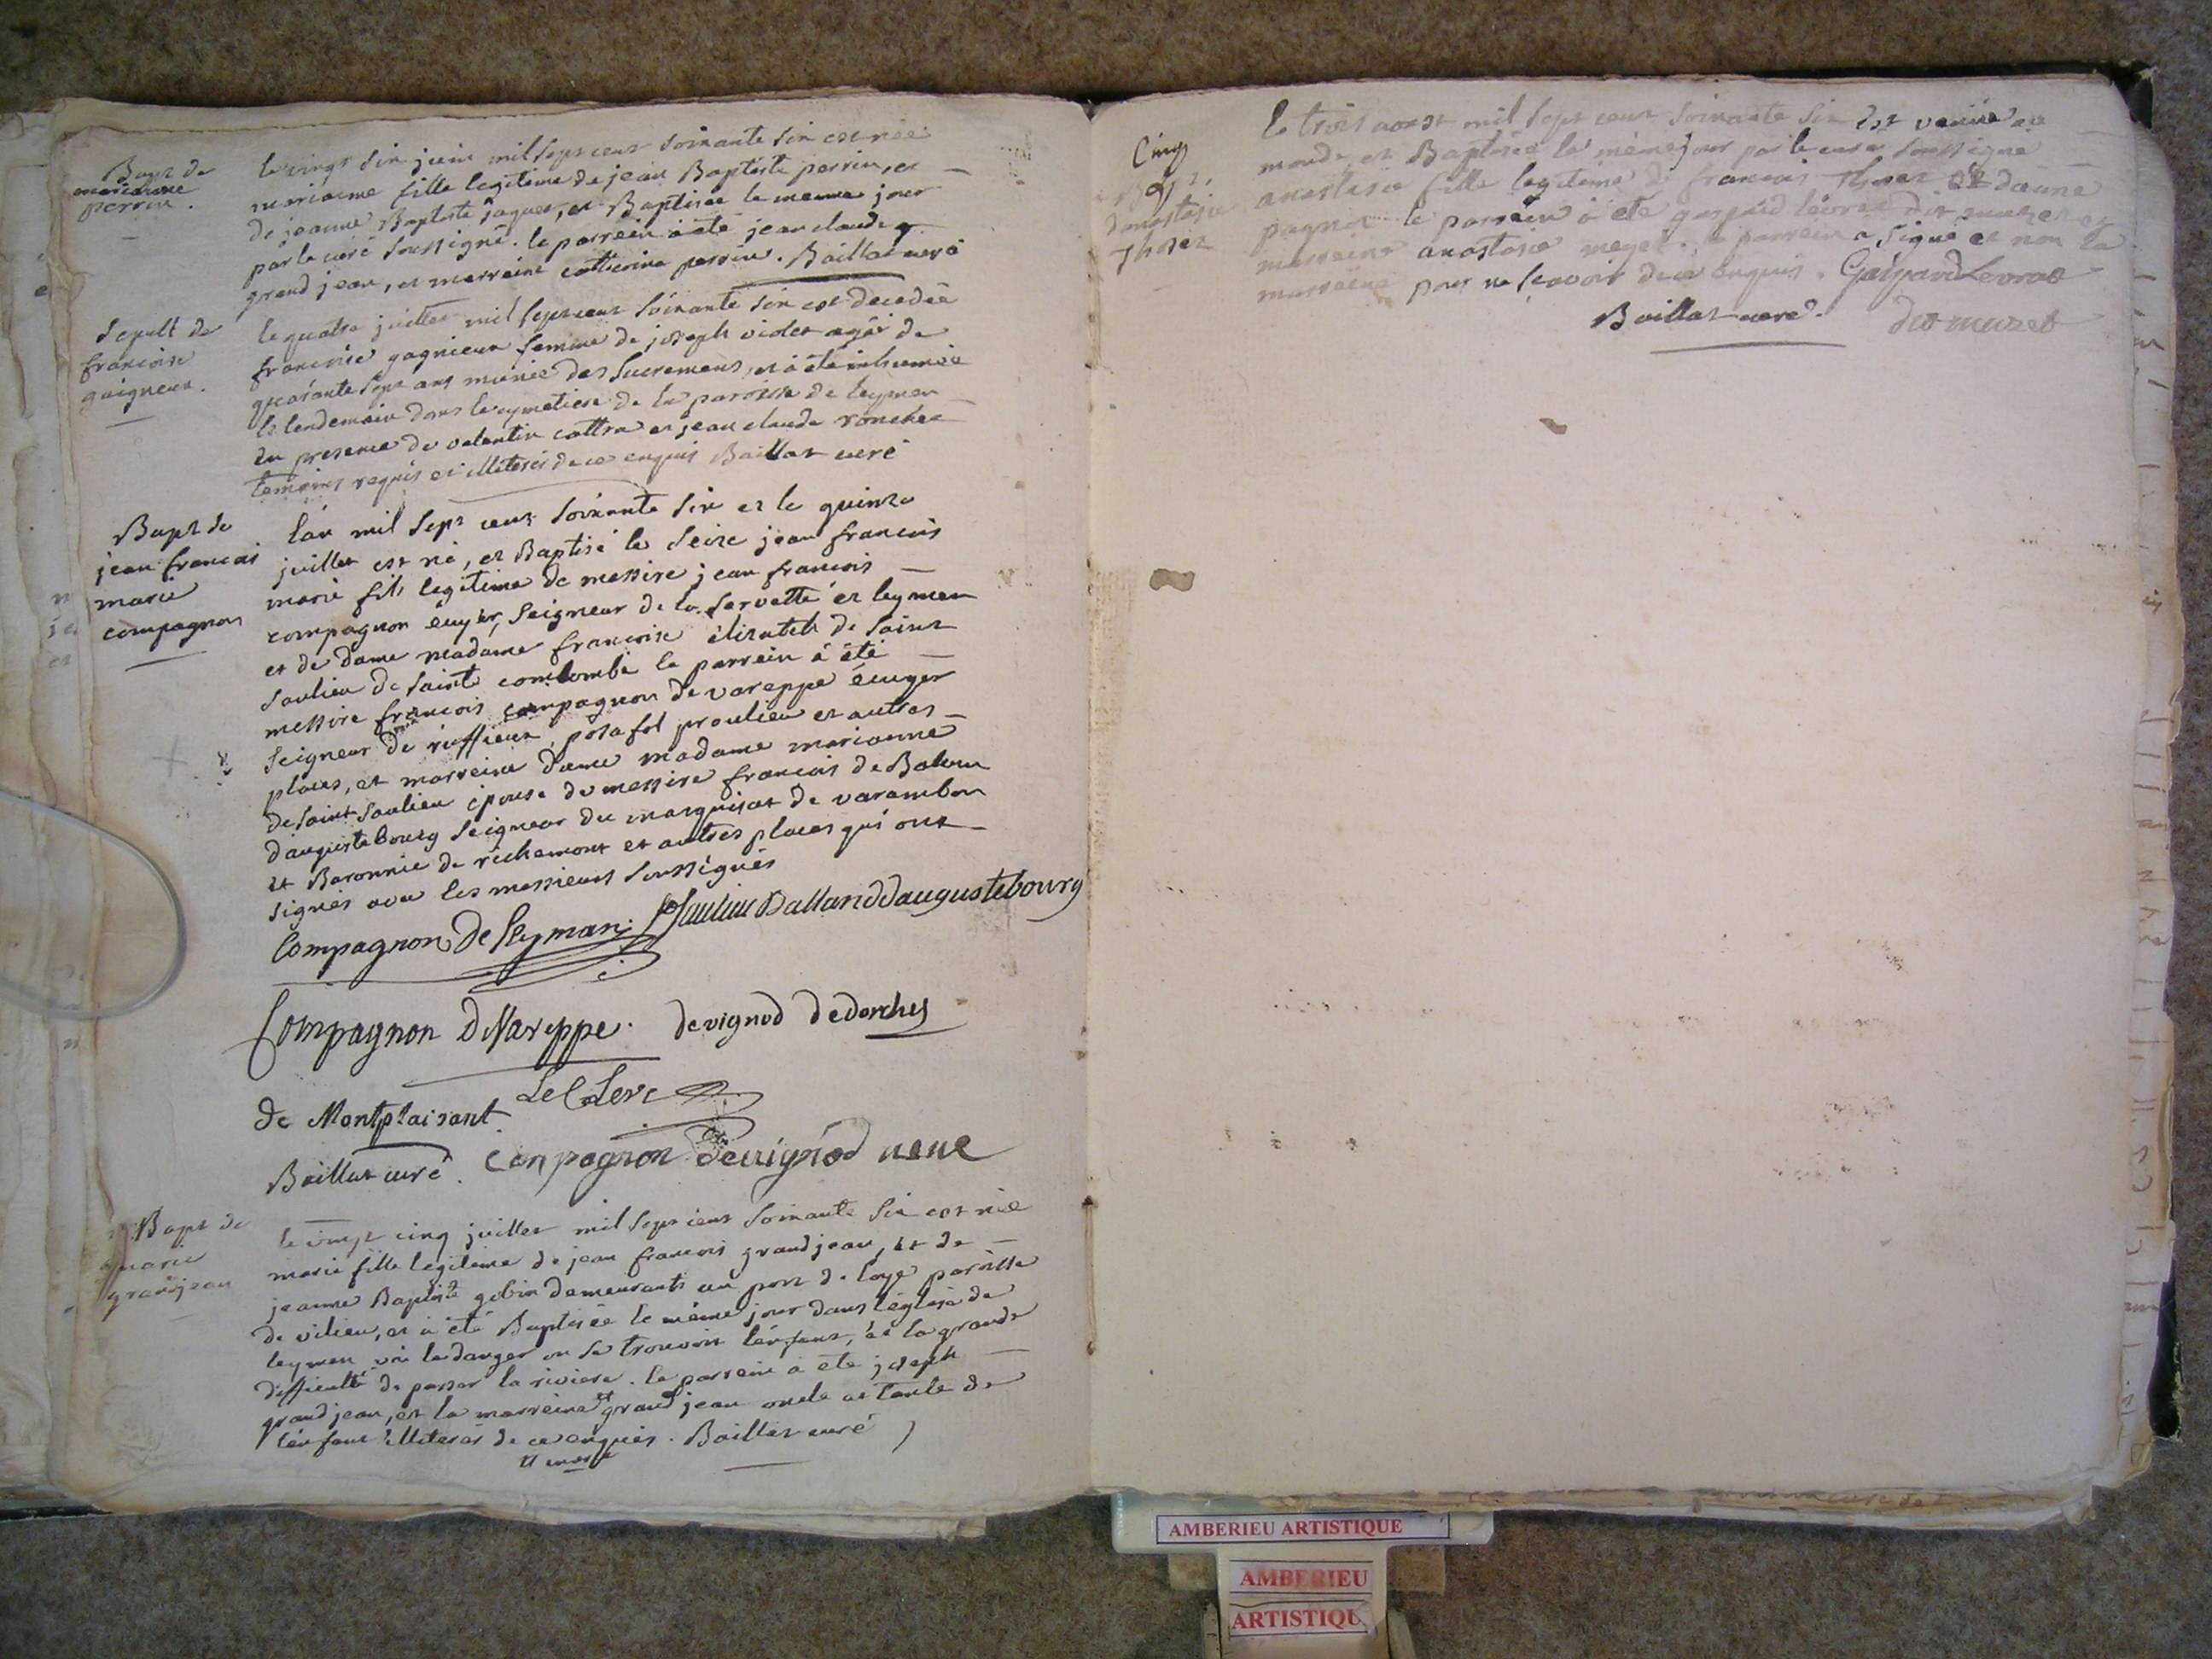 Bapt de
marianne
perrin.
le vingt six juin mil sept cent soixante six est née
marianne fille legitime de jean Baptiste perrin, et
de jeanne Baptiste jaques, et Baptisée le meme jour
par le curé soussigné. le parrein a été jean claude
grand jean, et marreine catherine perrin. Baillat curé
Sepult de
francoise
gaigneux.
le quatre juillet mil sept cent soixante six est decedée
francoise gagnieux femme de joseph violet agée de
quarante sept ans munie des sacremens, et a été inhumée
le lendemain dans le cymetiere de la paroisse de leymen
en presence de valentin cottra et jean claude ronchet
temoins requis et illiteres de ce enquis Baillat curé
Bapt de
jean francois
marie
compagnon
lan mil sept cent soixante six et le quinze
juillet est né, et Baptisé le seize jean francois
marie fils legitime de messire jean francois
compagnon ecuyer, seigneur de la servette et leymen
et de dame madame francoise élizabeth de saint
saulieu de sainte comlombe le parrein a été
messire francois compagnon de vareppe écuyer
seigneur de ruffieux, posafol proulieu et autres
places, et marreine dame madame marianne
de saint saulieu épouse de messire francois de Balan
daugustebourg seigneur du marquisat de varambon
et Baronnie de richemont et autres places qui ont
signés avec les messieurs soussignés
Compagnon De Leyman. Saulieu Balland daugustebourg
Compagnon DeVareppe. devignod dedorches
LeClerc
de Montplaisant
Baillat curé. Conpagnon devignod neue
Bapt de
marie
grandjean
le vingt cinq juillet mil sept cent soixante six est née
marie fille legitime de jean francois grandjean, et de
jeanne Baptiste gobin demeurants au port de loye paroisse
de vilieu, et a été Baptisée le même jour dans l'église de
leymen vû le danger ou se trouvoit lénfant, et la grande
difficulté de passer la riviere. le parrein a été joseph
grand jean, et la marreine grand jean oncle et tante de
lénfant illiteres de ce enquis. Baillat curé
Cinq
Bapt.
danastasie
thoset
le trois aoust mil sept cent soixante six est venüe au
monde, et Baptisée le même jour par le curé soussigné
anastasie fille legitime de francois et deanne
pagnot le parrein a été gaspard levrat dit muzet et
marreine anastasie le parrein a signé et non la
marreine pour ne scavoir de ce enquis. Gaspard Levrat
Baillat curé. dit muzet
AMBERIEU ARTISTIQUE
AMBERIEU
ARTISTIQUE